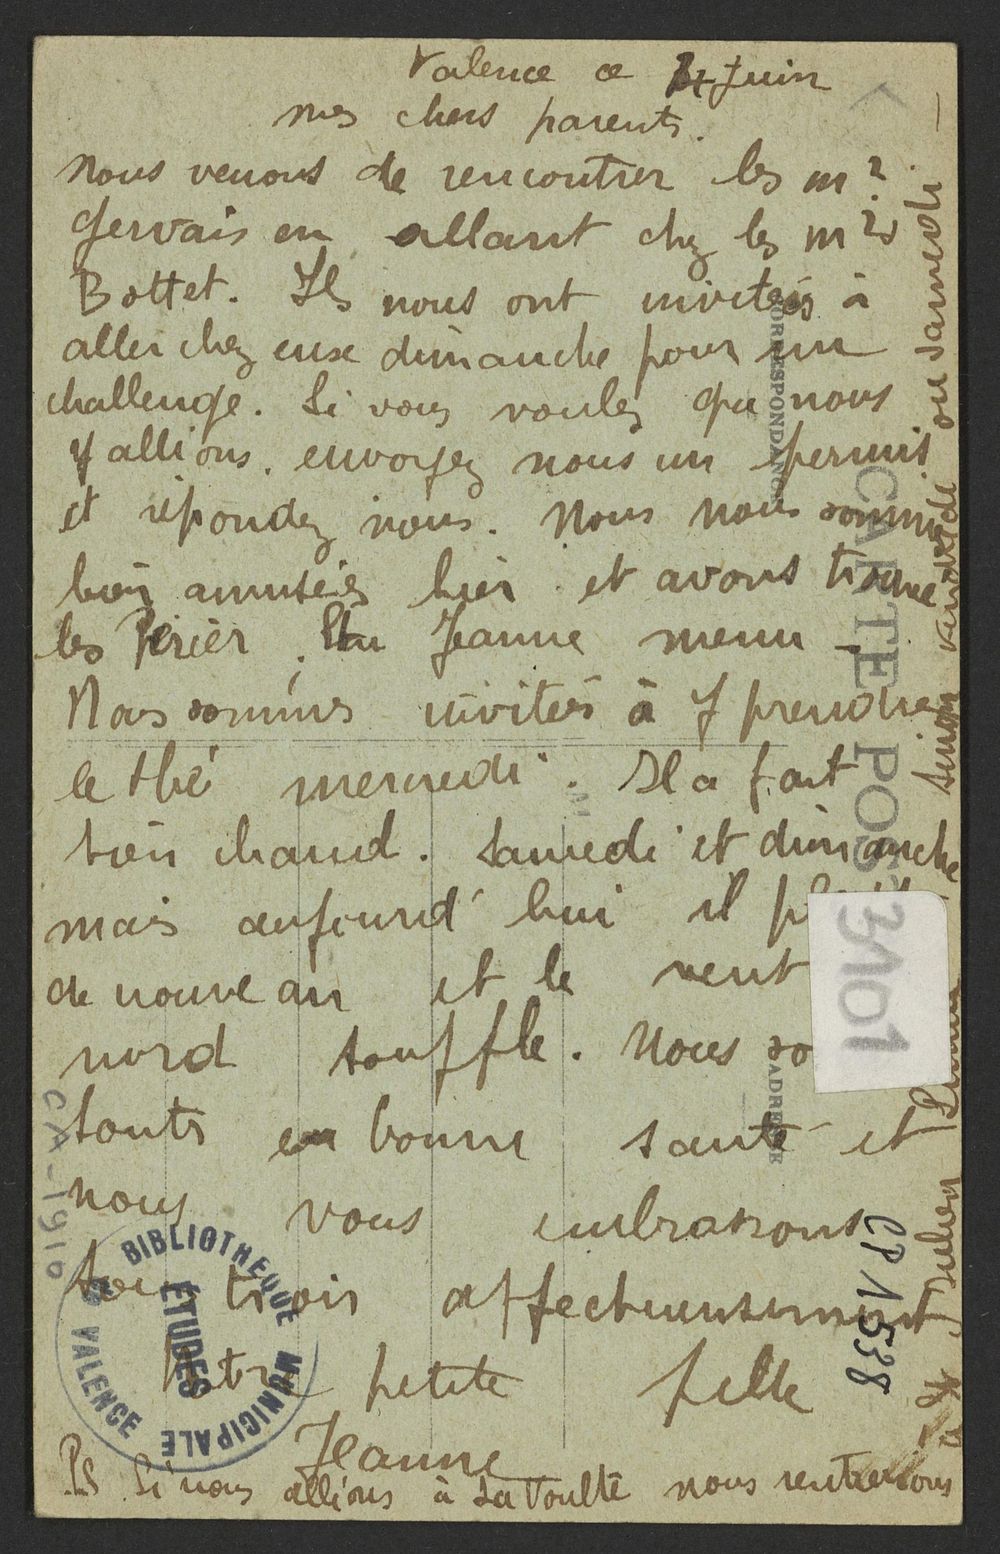 Valence ce 4 Juin
mes chers parents.
Nous venons de rencontrer les mrs
Gervais en allant chez les mrs
Bottet. Ils nous ont invitées à
aller chez eux dimanche pour un
challenge. Si vous voulez que nous
y allions, envoyez nous un permis
et répondez nous. Nous nous sommes
bien amusées hier et avons trouvé
les Périer, Jeanne menu
Nous sommes invitées à y prendre
le thé mercredi. Il a fait
bien chaud. Samedi et dimanche
mais aujourd'hui il
de nouveau et le vent
nord souffle. Nous
touts en bonne santé et
nous vous embrassons
tous trois affectueusement
Votre petite fille
Jeanne
Ps Si nous allions à La Voulte nous rentrerions
à St Julien sinon vendredi ou samedi
CORRESPONDANCE
CARTE POSTALE
ADRESSE
3101
CP 1538
CA-1910
BIBLIOTHEQUE MUNICIPALE
ÉTUDES
VALENCE